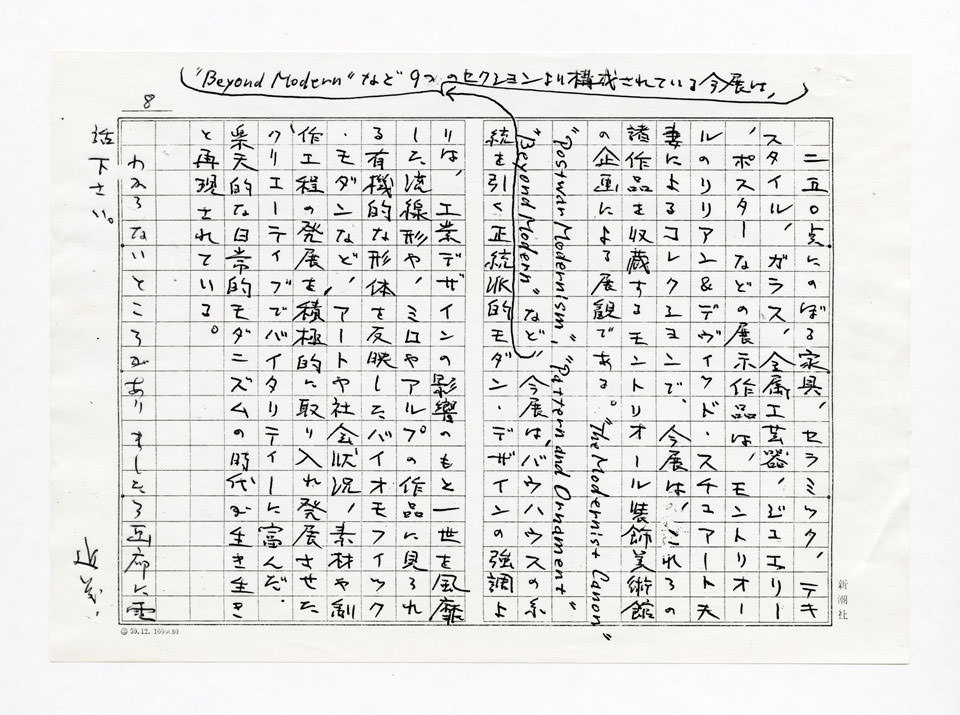 "Beyond Modern"など9つのセクションより構成されている今展は、
8
二五〇点にのぼる家具、セラミック、テキ
スタイル、ガラス、金属工芸器、ジュエリー
、ポスターなどの展示作品は、モントリオー
ルのリリアン&デヴィッド・スチュアート夫
妻によるコレクションで、今展は、これらの
諸作品を収蔵するモントリオール装飾美術館
の企画による展観である。"The Modernist Canon"
"Postwar Modernism", "Pattern and Ornament"
"Beyond Modern"など 今展は、バウハウスの系
統を引く正統派的モダン・デザインの強調よ
りは、工業デザインの影響のもと一世を風靡
した流線形や、ミロやアルプの作品に見られ
る有機的な形体を反映したバイオモフィック
・モダンなど、アートや社会状況、素材や制
作工程の発展を積極的に取り入れ発展させた
、クリエーティブでバイタリティーに富んだ
楽天的な日常的モダニズムの時代が生き生き
と再現されている。
わからないところがありましたら画廊に電
話下さい。
新潮社
50.12. 100×80